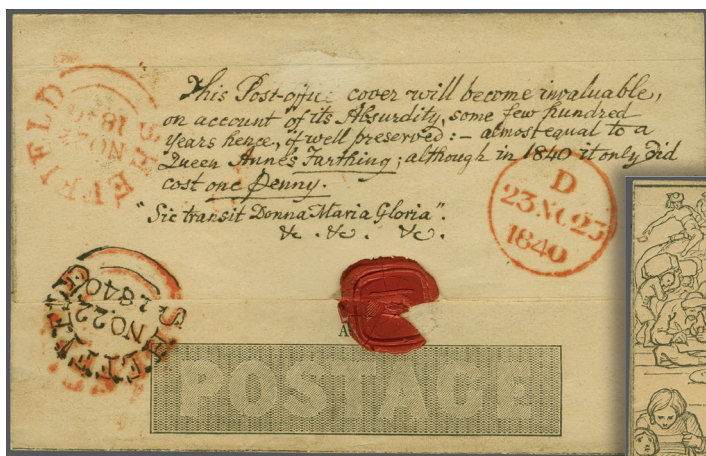 This Post-office cover will become invaluable,
on account of its Absurdity, some few hundred
Years hence, if well preserved: - almost equal to a
Queen Anne's Farthing; although in 1840 it only did
cost one Penny.
"Sic transit Donna Maria Gloria".
&c. &c. &c.
SHEFFIELD
NO 22
1840
D
23 NO 23
1840
SHEFFIELD
NO 22
1840
A
POSTAGE